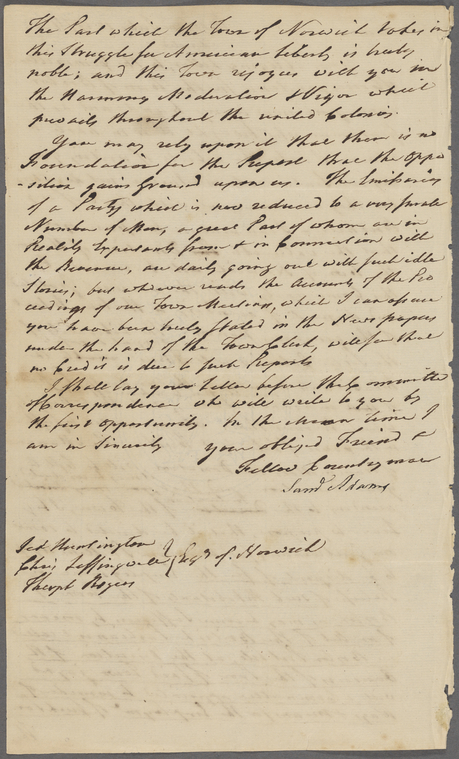 The Part which the Town of Norwich takes in
this Struggle for American Liberty is truly
noble; and this Town rejoyces with you in
the Harmony Moderation & Vigor which
prevails throughout the united Colonies.
You may rely upon it that there is no
Foundation for the Report that the Oppo
-sition gains Ground upon us. The Emissaries
of a Party which is now reduced to a very small
Number of Men, a great Part of whom are in
Reality Expectants from & in Connection with
the Revenue, are daily going out with such idle
Stories; but whoever reads the Accounts of the Pro
ceedings of our Town Meetings, which I can assure
you have been truly stated in the News papers
under the hand of the Town Clerk, will see that
no Credit is due to such Reports
I shall lay your Letter before the Committee
of Correspondence who will write to you by
the first Opportunity. In the mean time I
am in Sincerity your obliged Friend &
Fellow Countryman
Saml Adams
Jed Huntington
Chris Leffingwell } Esqrs of Norwich
Theoph Rogers